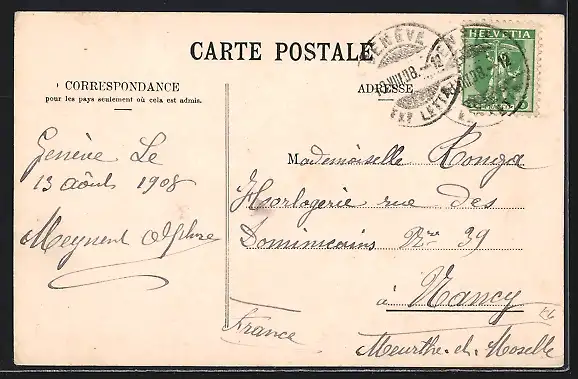 CARTE POSTALE
CORRESPONDANCE
pour les pays seulement où cela est admis.
ADRESSE
HELVETIA
GENÈVE
EXP. LETTR.
Genève Le
13 août 1908
Meynent Alphse
Mademoiselle Ronga
Horlogerie rue des
Dominicains No 39
à Nancy
France
Meurthe-et-Moselle